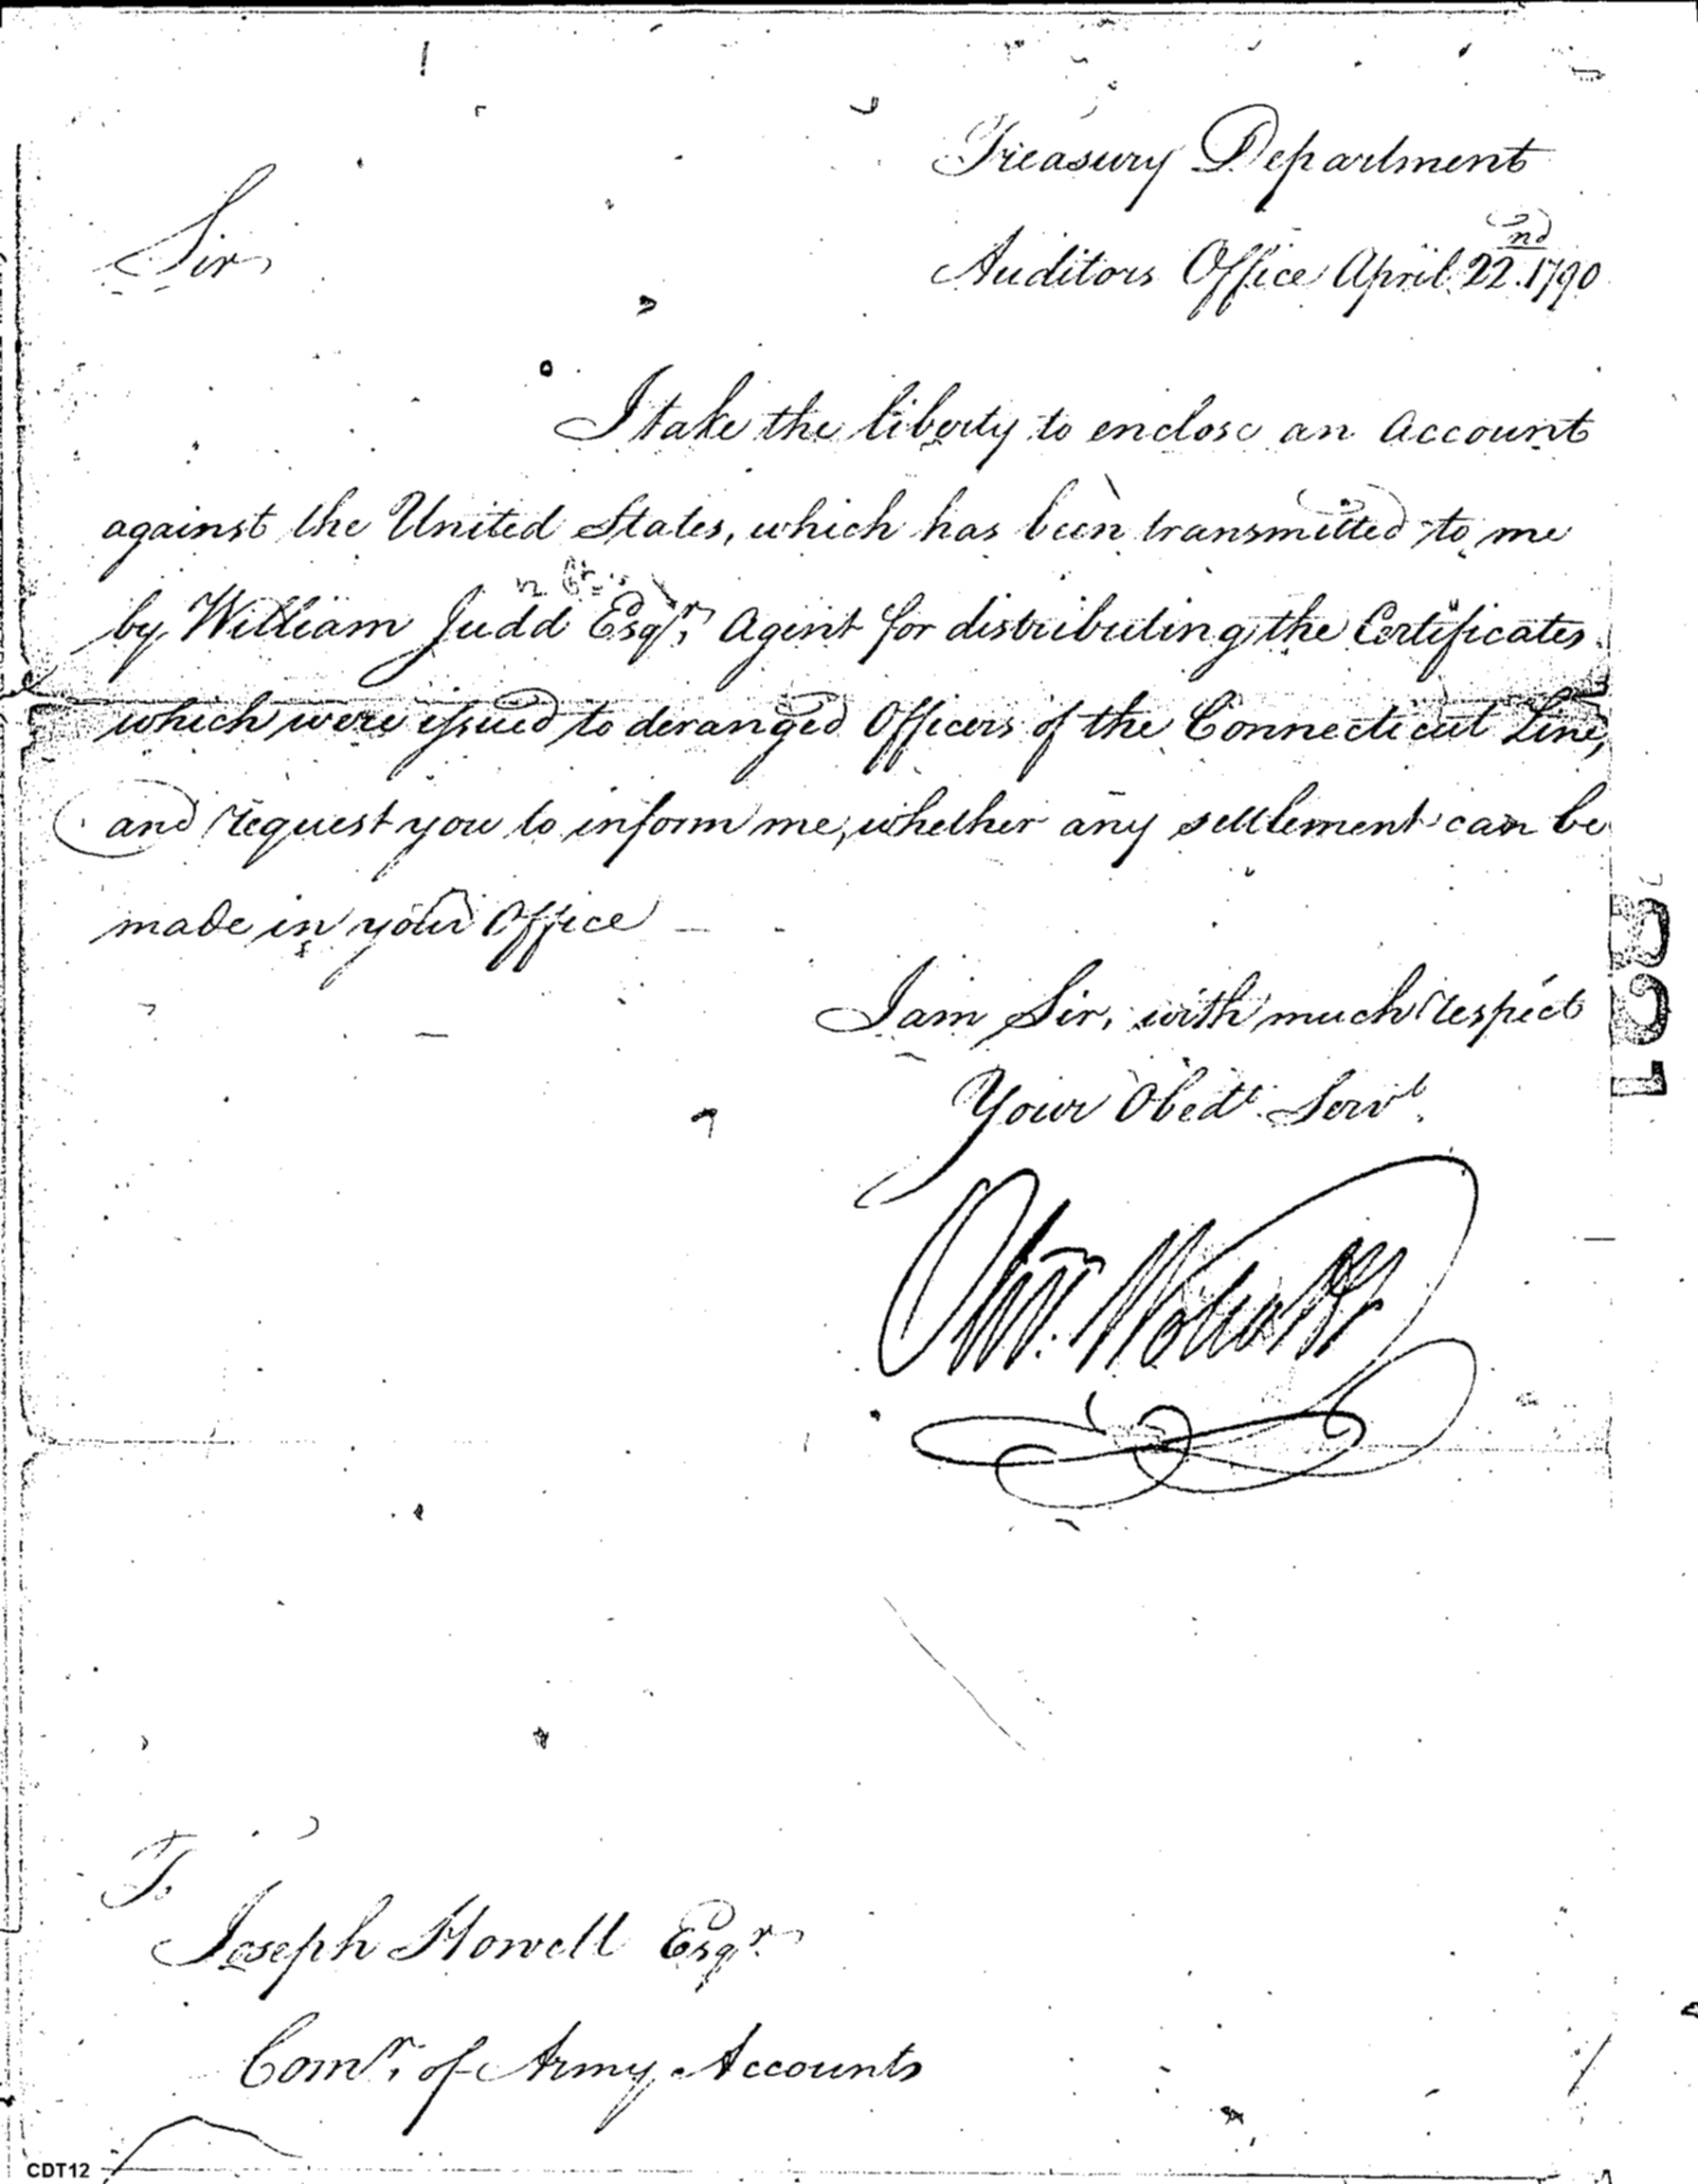 Treasury Department
Sir
Auditors Office April 22nd. 1790
I take the liberty to enclose an Account
against the United States, which has been transmitted to me
by William Judd Esqr. Agent for distributing the Certificates
which were issued to deranged Officers of the Connecticut Line,
and request you to inform me, whether any settlement can be
made in your Office
I am Sir, with much respect
Your Obedt. Servt.
Olivr. Wolcott Jr
To
Joseph Howell Esqr.
Comr. of Army Accounts
CDT12